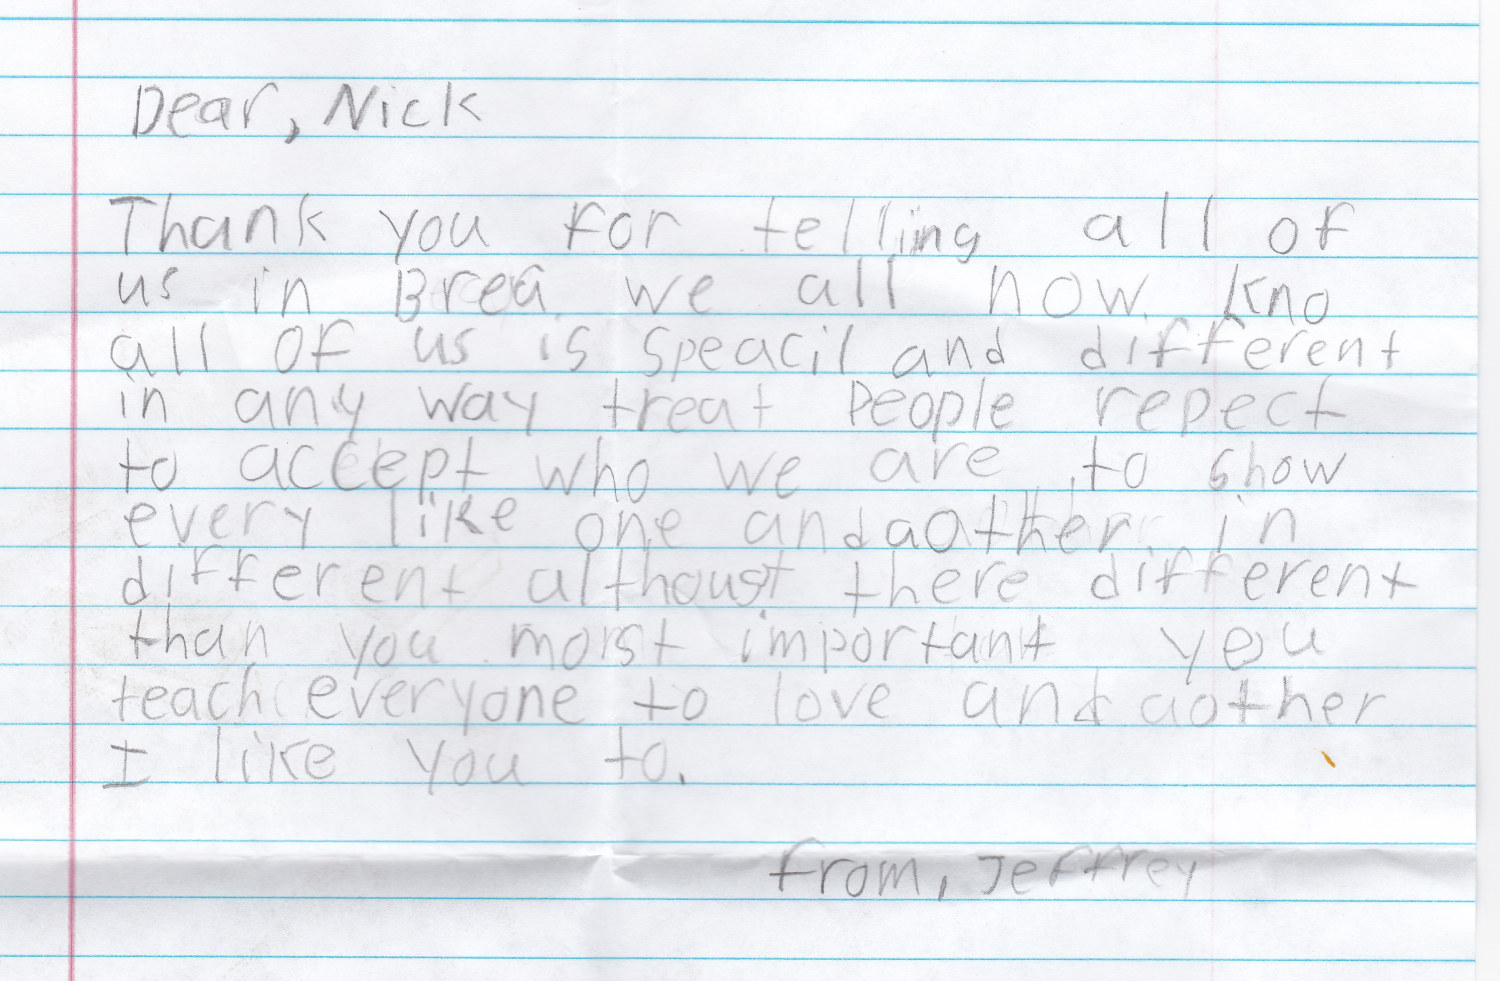 Dear, Nick
Thank you for telling all of
us in Brea we all now kno
all of us is speacil and different
in any way treat People repect
to accept who we are to show
every like one andaother in
different althoust there different
than you morst important you
teach everyone to love and aother
I like you to.
from, Jeffrey